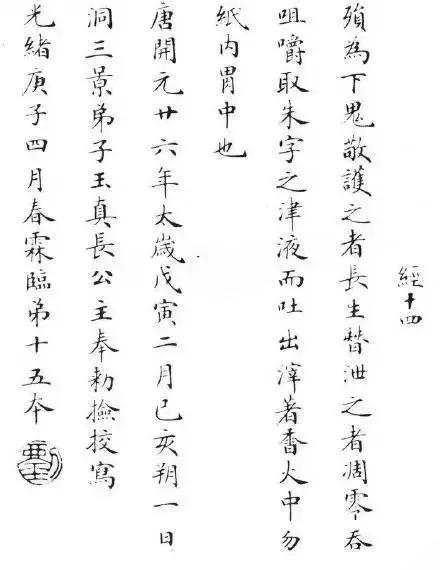 經十四
殞為下鬼敬護之者長生朁泄之者凋零吞
咀嚼取朱字之津液而吐出滓著香火中勿
紙内胃中也
唐開元廿六年太歲戊寅二月己亥朔一日
洞三景弟子玉真長公主奉勑撿挍寫
光緒庚子四月春霖臨弟十五本